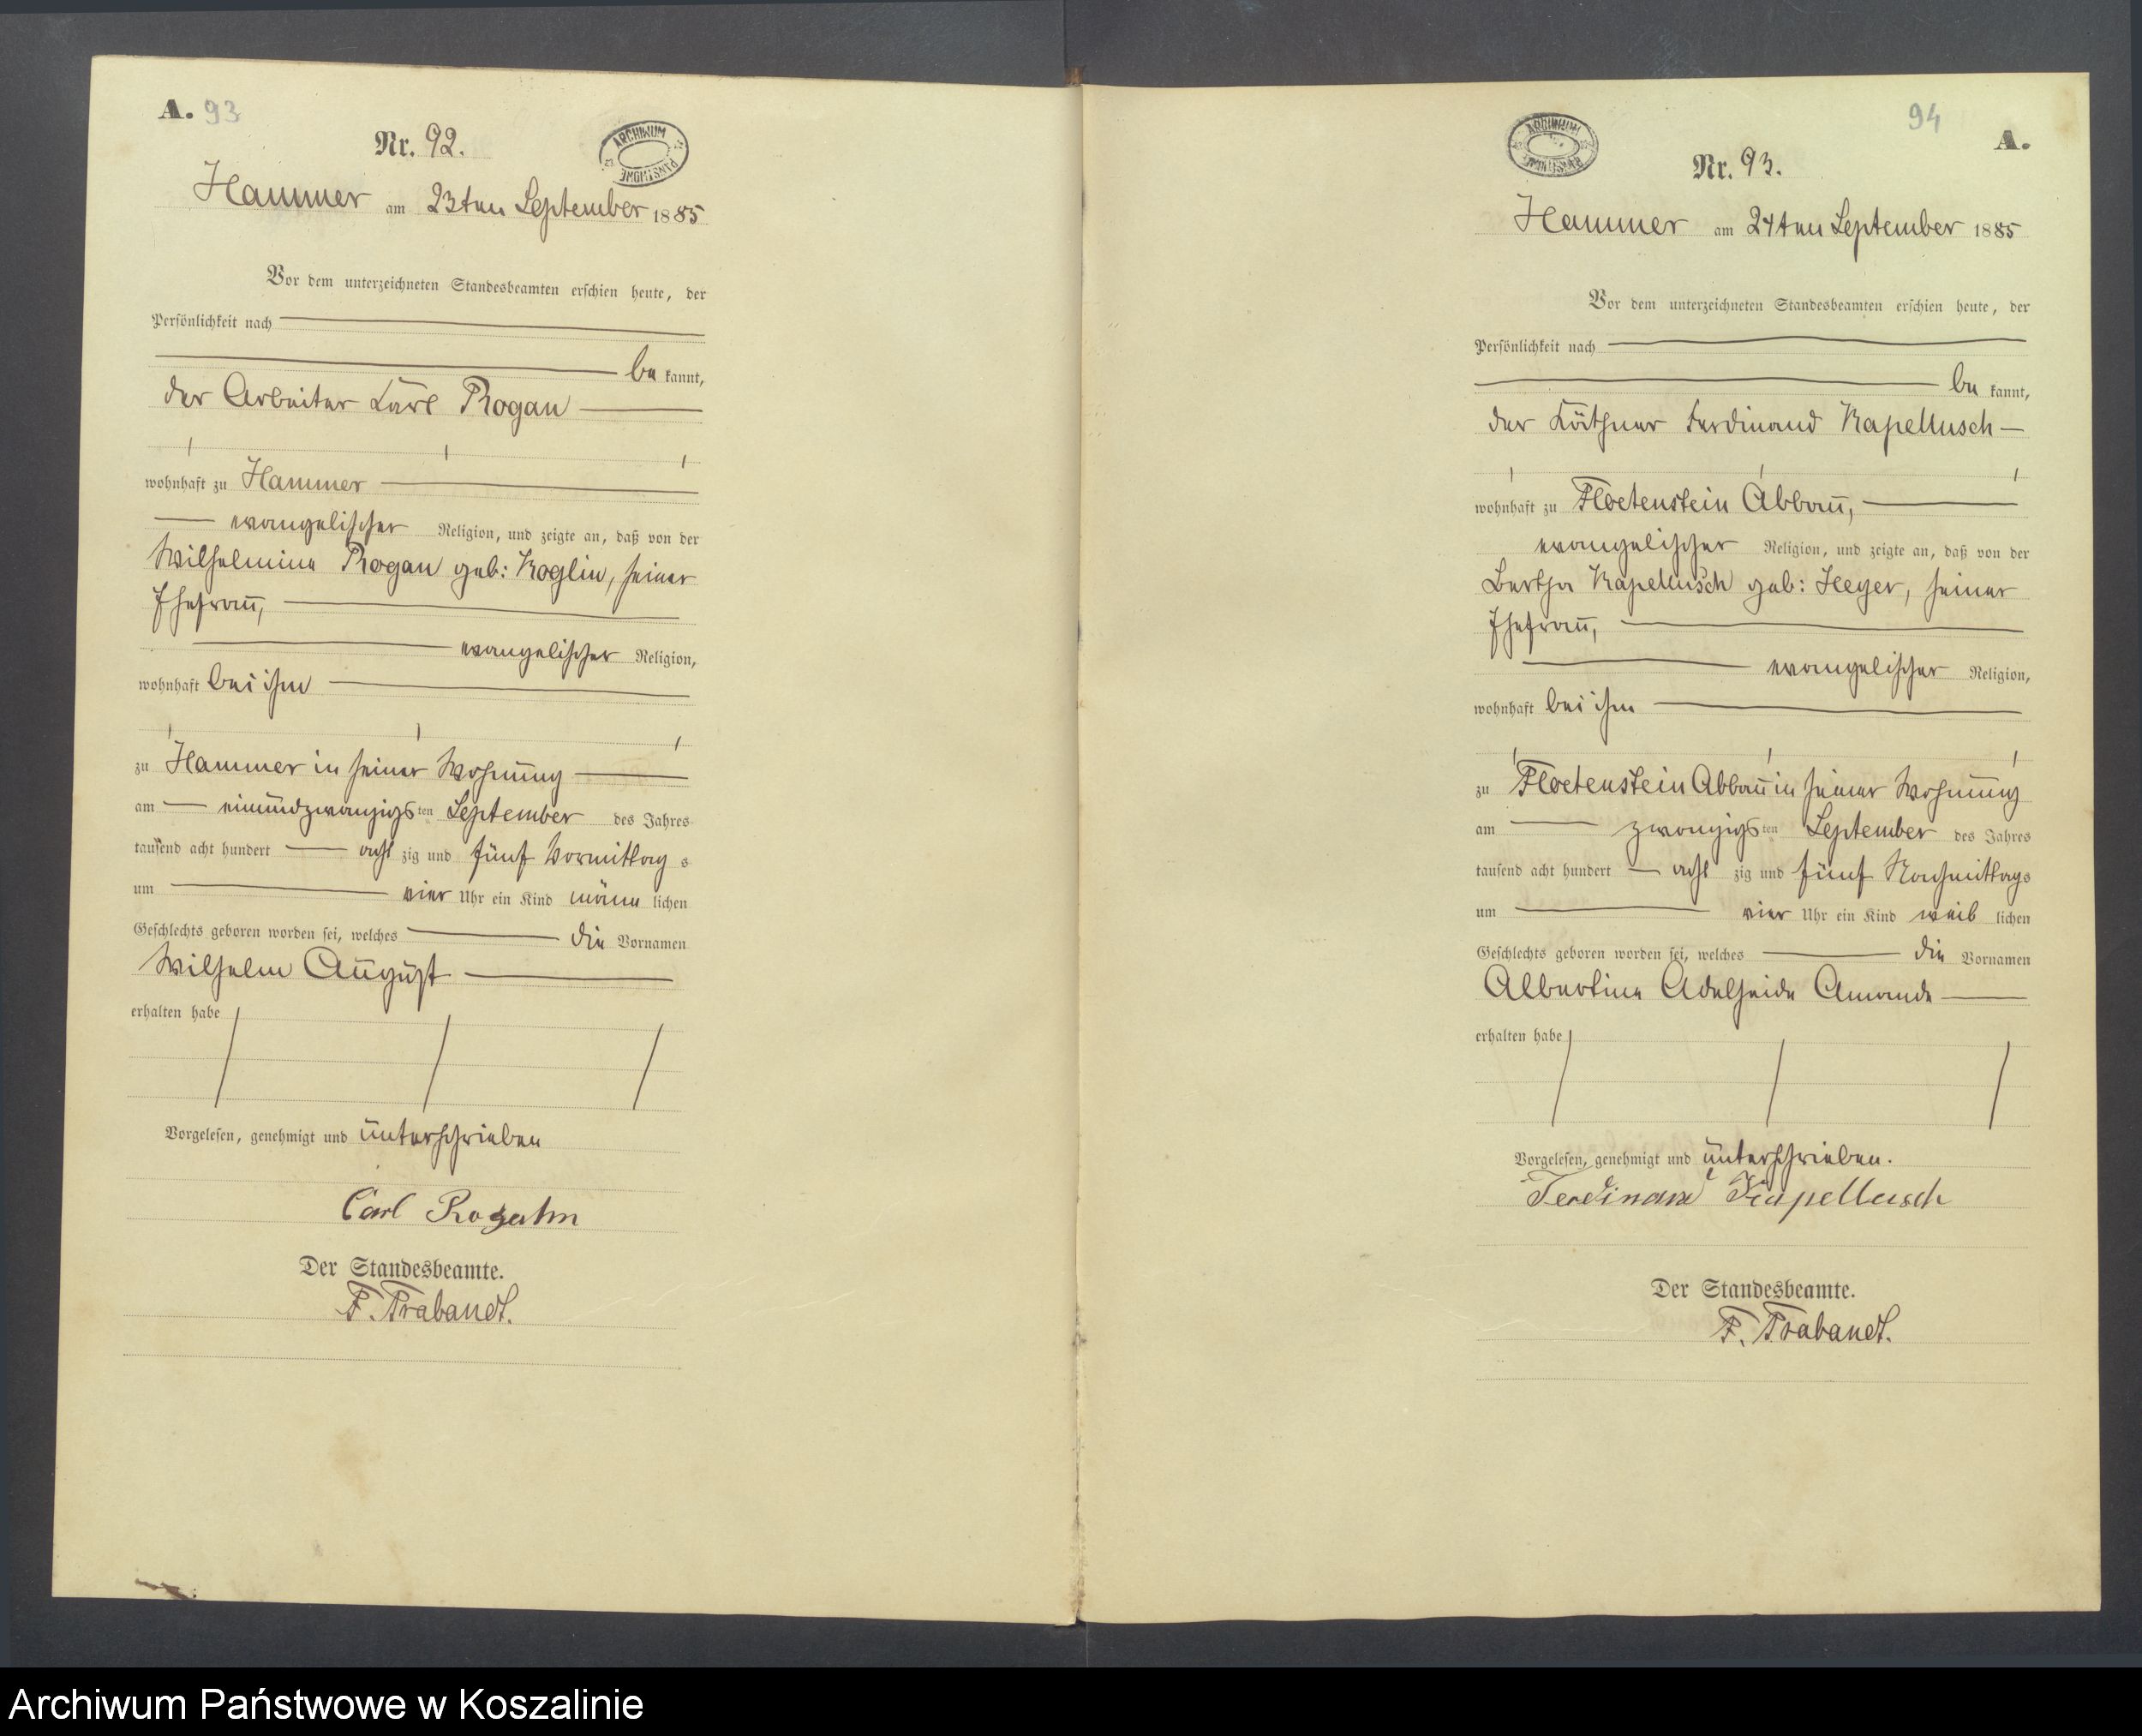 A. 93
Nr. 92.
ARCHIWUM PAŃSTWOWE
Hammer am 23ten September 1885
Vor dem unterzeichneten Standesbeamten erschien heute, der
Persönlichkeit nach
be kannt,
der Arbeiter Karl Rogan
wohnhaft zu Hammer
evangelischer Religion, und zeigte an, daß von der
Wilhelmine Rogan geb: Koglin, seiner
Ehefrau,
evangelischer Religion,
wohnhaft bei ihm
zu Hammer in seiner Wohnung
am einundzwanzigsten September des Jahres
tausend acht hundert acht zig und fünf Vormittag s
um vier Uhr ein Kind männ lichen
Geschlechts geboren worden sei, welches die Vornamen
Wilhelm August
erhalten habe
Vorgelesen, genehmigt und unterschrieben
Carl Rogahn
Der Standesbeamte.
F. Trabandt.
94
A.
ARCHIWUM PAŃSTWOWE
Nr. 93.
Hammer am 24ten September 1885
Vor dem unterzeichneten Standesbeamten erschien heute, der
Persönlichkeit nach
be kannt,
der Käthner Ferdinand Kapellusch
wohnhaft zu Floetenstein Abbau,
evangelischer Religion, und zeigte an, daß von der
Bertha Kapellusch geb: Heyer, seiner
Ehefrau,
evangelischer Religion,
wohnhaft bei ihm
zu Floetenstein Abbau in seiner Wohnung
am zwanzigsten September des Jahres
tausend acht hundert acht zig und fünf Nachmittags
um vier Uhr ein Kind weib lichen
Geschlechts geboren worden sei, welches die Vornamen
Albertine Adelheide Amande
erhalten habe
Vorgelesen, genehmigt und unterschrieben.
Ferdinand Kapellusch
Der Standesbeamte.
F. Trabandt.
Archiwum Państwowe w Koszalinie